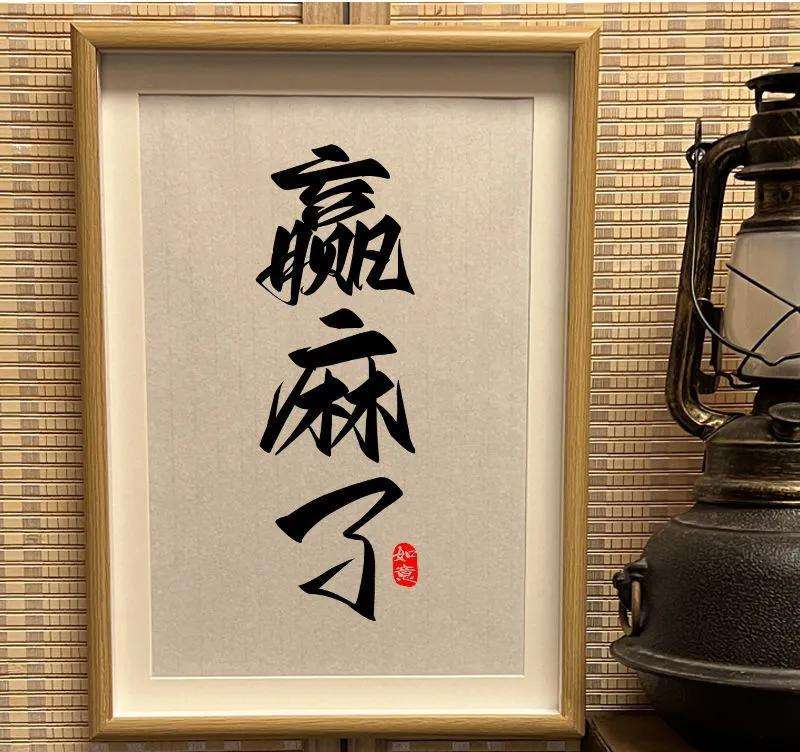 赢麻了
如意